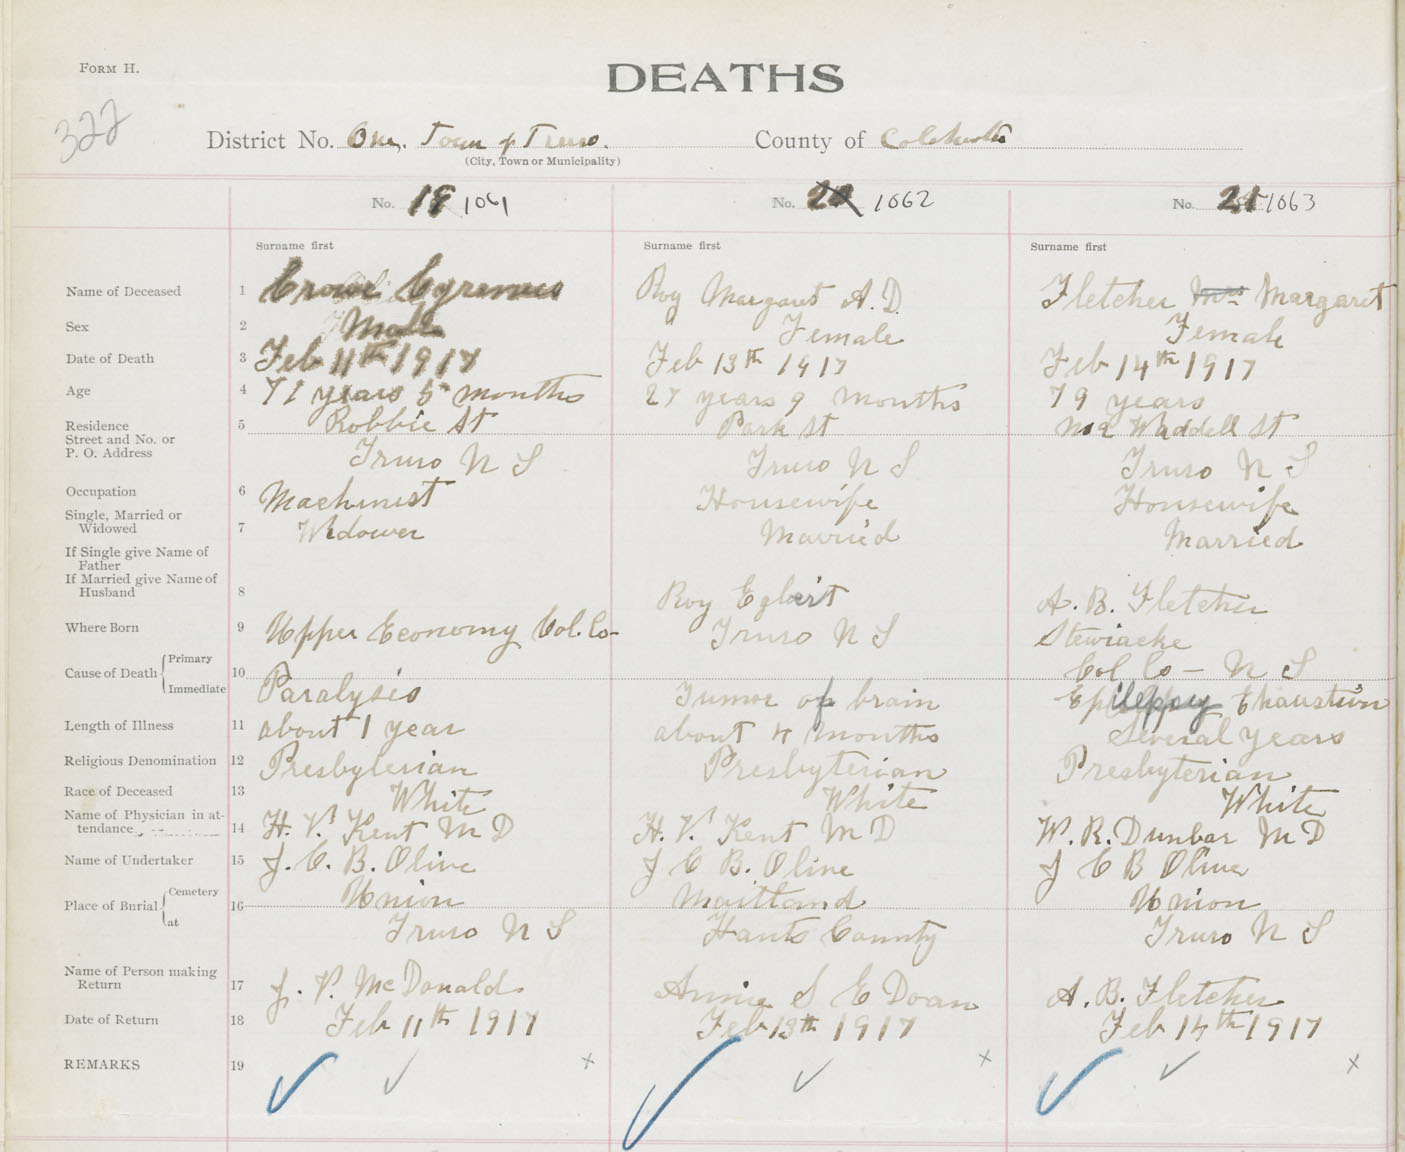 FORM H.
DEATHS
322
District No. One, Town of Truro. County of Colchester
(City, Town or Municipality)
No. 18 1061 No. 20 1062 No. 21 1063
Surname first Surname first Surname first
Name of Deceased 1 Crowe Roy Margaret A. D. Fletcher Mrs Margaret
Sex 2 Male Female Female
Date of Death 3 Feb 11th 1917 Feb 13th 1917 Feb 14th 1917
Age 4 71 years 5 months 27 years 9 months 79 years
Residence 5 Robbie St Park St No 2 Waddell St
Street and No. or
P. O. Address Truro N S Truro N S Truro N S
Occupation 6 Machinist Housewife Housewife
Single, Married or
Widowed 7 Widower Married Married
If Single give Name of
Father
If Married give Name of
Husband 8 Roy Egbert A. B. Fletcher
Where Born 9 Upper Economy Col. Co- Truro N S Stewiacke
Col Co - N S
Cause of Death Primary
Immediate 10 Paralysis Tumor of brain Epilepsy Exhaustion
Length of Illness 11 about 1 year about 4 months Several years
Religious Denomination 12 Presbyterian Presbyterian Presbyterian
Race of Deceased 13 White White White
Name of Physician in at-
tendance 14 H. V. Kent M D H. V. Kent M D W. R. Dunbar M D
Name of Undertaker 15 J. C. B. Olive J C B. Olive J C B Olive
Place of Burial Cemetery 16 Union Maitland Union
at Truro N S Hants County Truro N S
Name of Person making
Return 17 J. P. McDonald Annie S E Doan A. B. Fletcher
Date of Return 18 Feb 11th 1917 Feb 13th 1917 Feb 14th 1917
REMARKS 19